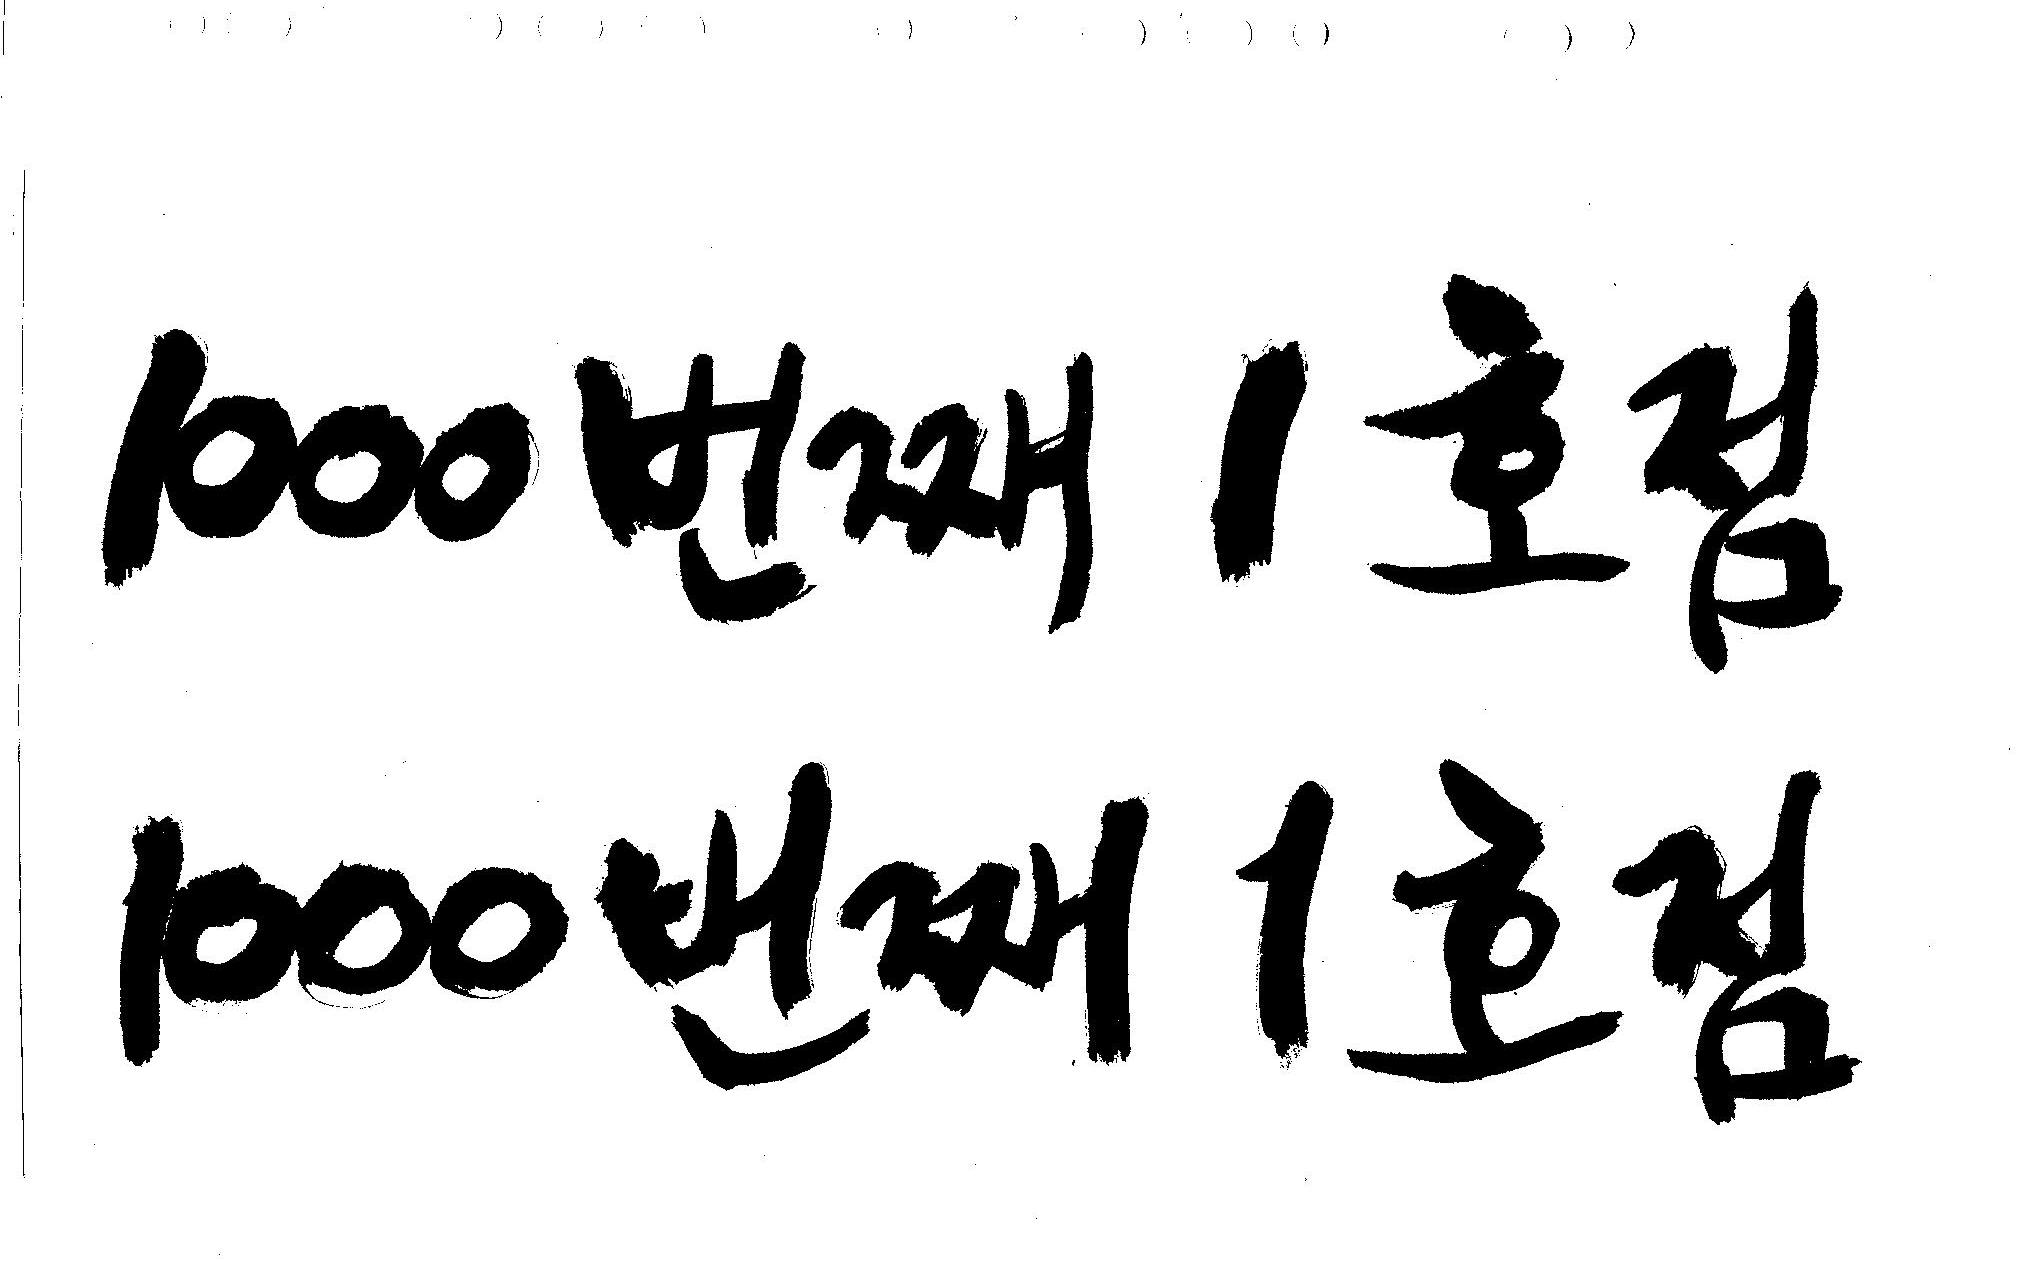 1000번째 1호점
1000번째 1호점